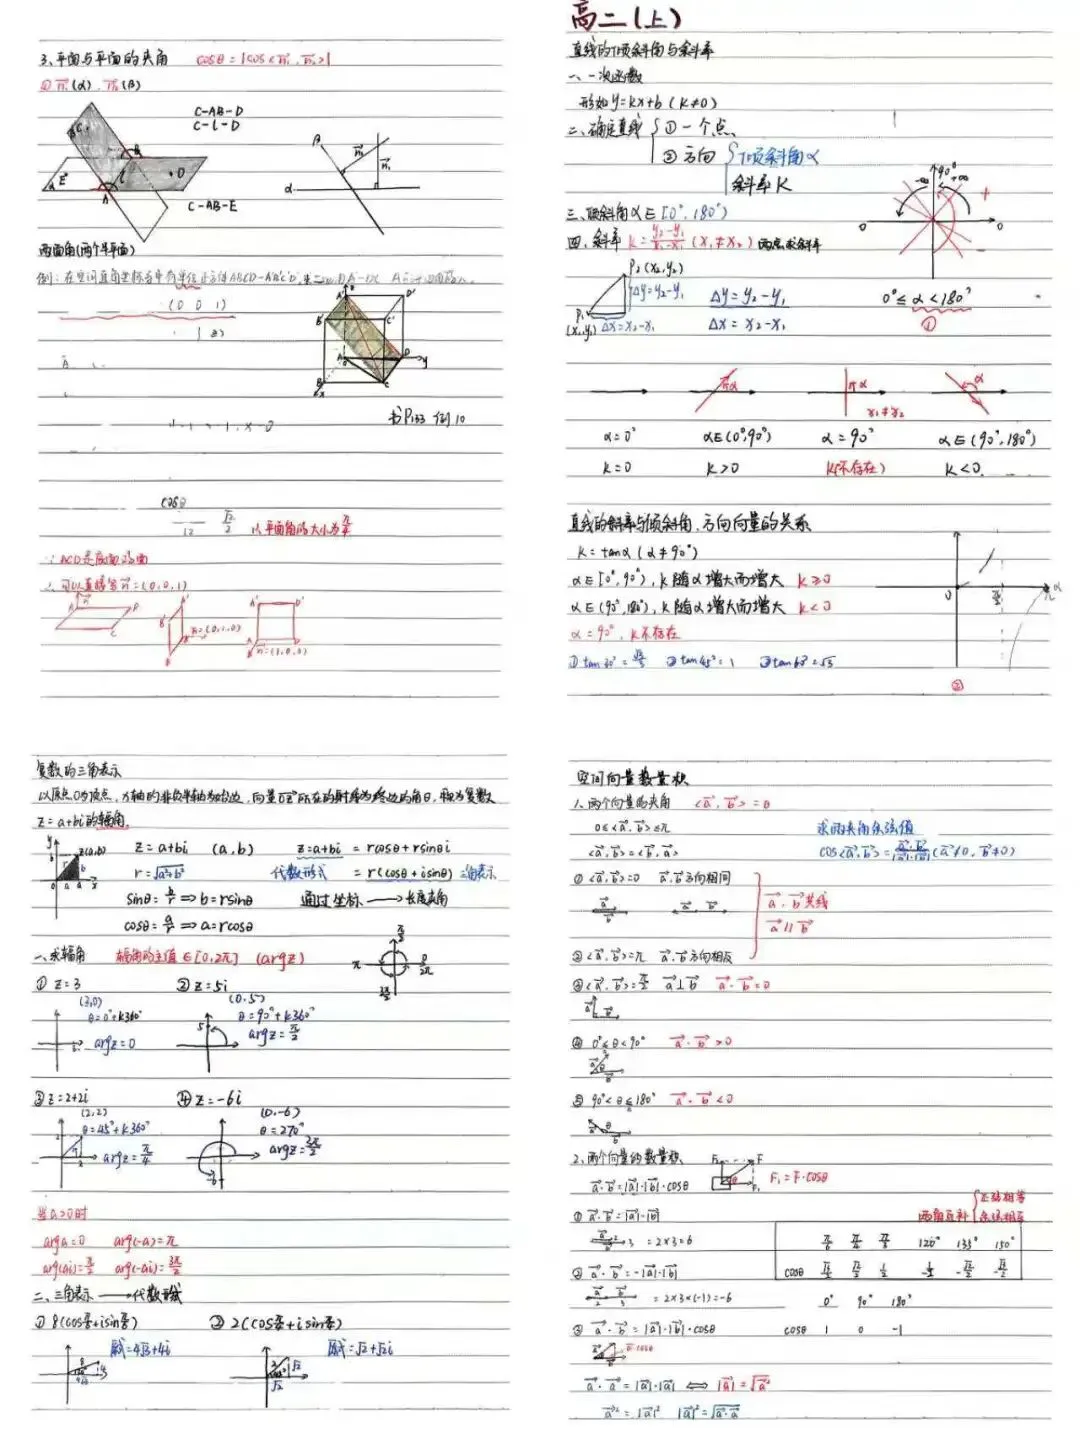 3、平面与平面的夹角 cosθ = |cos<n₁, n₂>|
① n₁(α), n₂(β)
C-AB-D
C-l-D
C-AB-E
两面角(两个半平面)
(0 0 1)
书P153 例10
cosθ
√2/2
平面角的大小为π/4
∵ ACD是底面的面
∴ 可以直接写n=(0,0,1)
n=(0,1,0)
n=(1,0,0)
高二(上)
直线的倾斜角与斜率
一、一次函数
形如y=kx+b (k≠0)
二、确定直线 ①一个点、
②方向 倾斜角α
斜率K
三、倾斜角α∈[0°,180°)
四、斜率 k=(y₂-y₁)/(x₂-x₁) (x₁≠x₂) 两点求斜率
P₂(x₂,y₂)
Δy=y₂-y₁ Δy=y₂-y₁ 0°≤α<180°
P₁(x₁,y₁) Δx=x₂-x₁ Δx=x₂-x₁ ①
x₁≠x₂
α=0° α∈(0°,90°) α=90° α∈(90°,180°)
k=0 k>0 k(不存在) k<0
直线的斜率与倾斜角、方向向量的关系
k=tanα(α≠90°)
α∈[0°,90°), k随α增大而增大 k≥0
α∈(90°,180°), k随α增大而增大 k<0
α=90°, k不存在
①tan30°=√3/3 ②tan45°=1 ③tan60°=√3
②
复数的三角表示
以原点O为顶点, x轴的非负半轴为始边, 向量OZ所在的射线为终边的角θ, 称为复数
z=a+bi的辐角.
z=a+bi (a,b) z=a+bi = rcosθ+rsinθi
r=√(a²+b²) 代数形式 = r(cosθ+isinθ) 三角表示
sinθ=b/r ⇒ b=rsinθ 通过坐标 → 长度夹角
cosθ=a/r ⇒ a=rcosθ
一、求辐角 辐角的主值∈[0,2π] (argz)
①z=3 ②z=5i
(3,0) (0,5)
θ=0°+k360° θ=90°+k360°
argz=0 argz=π/2
③z=2+2i ④z=-6i
(2,2) (0,-6)
θ=45°+k360° θ=270°
argz=π/4 argz=3π/2
当a>0时
arga=0 arg(-a)=π
arg(ai)=π/2 arg(-ai)=3π/2
二、三角表示 → 代数形式
①8(cosπ/6+isinπ/6) ②2(cosπ/4+isinπ/4)
原式=4√3+4i 原式=√2+√2i
空间向量数量积
1、两个向量的夹角 <a,b>=θ
0≤<a,b>≤π 求两夹角余弦值
<a,b>=<b,a> cos<a,b>=a·b/|a|·|b| (a≠0, b≠0)
①<a,b>=0 a,b方向相同
a,b共线
a∥b
②<a,b>=π a,b方向相反
③<a,b>=π/2 a⊥b a·b=0
④0°≤θ<90° a·b>0
⑤90°<θ≤180° a·b<0
2、两个向量的数量积
a·b=|a|·|b|·cosθ F₁=F·cosθ
①a·b=|a|·|b| 两角互补 正弦相等
=2×3=6 余弦相反
π/6 π/4 π/3 120° 135° 150°
②a·b=-|a|·|b| cosθ √3/2 √2/2 1/2 -1/2 -√2/2 -√3/2
=2×3×(-1)=-6 0° 90° 180°
③a·b=|a|·|b|·cosθ cosθ 1 0 -1
a·a=|a|·|a| ⇔ |a|=√a²
a²=|a|² |a|²=√a·a